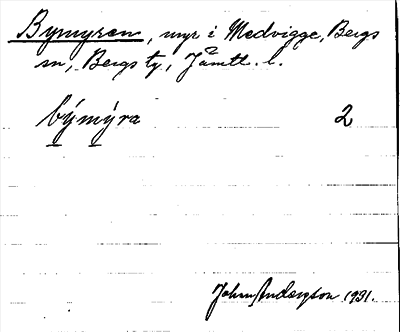 Bymyren, myr i Medvigge, Bergs
sn, Bergs ty., Jämtl. l.
býmýra 2
John Anderzson 1931.